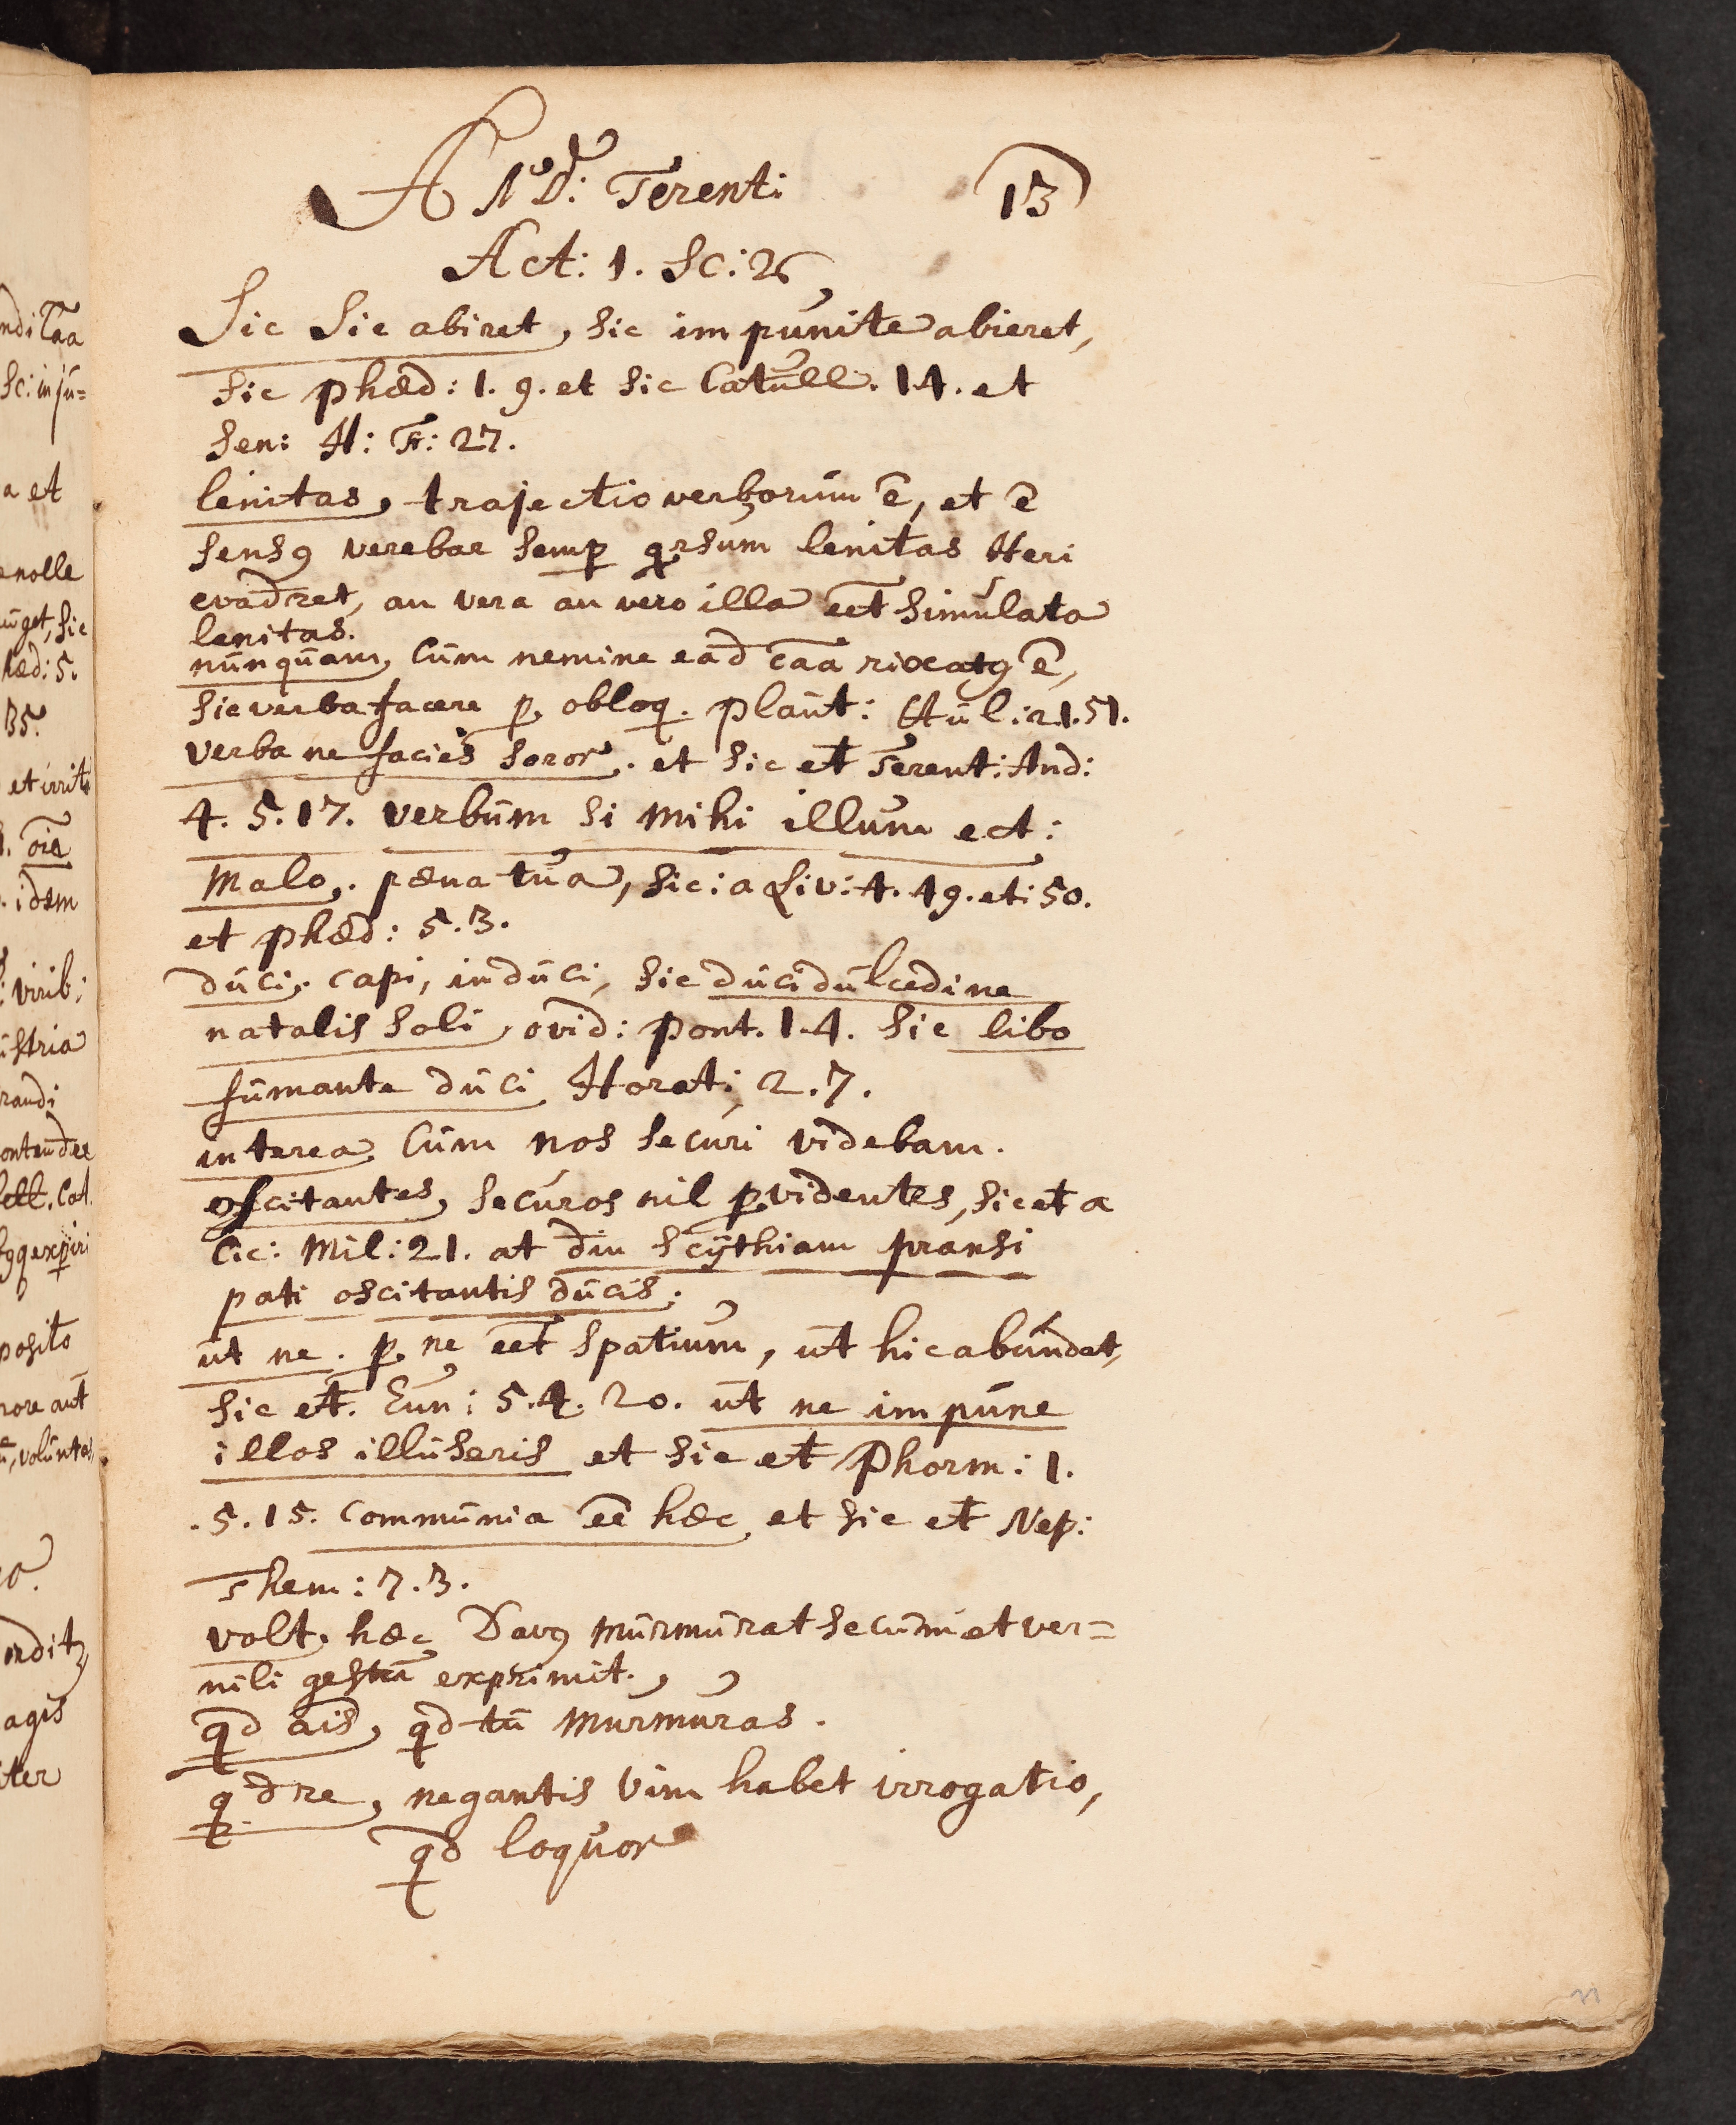 And: Terent: 13
Act: 1. Sc: 2
Sic Sic abiret, sic impunite abieret,
sic phæd: 1. 9. et sic Catull. 14. et
Sen: H: Fr: 27.
lenitas, trajectio verborum ē, et ē
sensꝯ verebar semp qrsum lenitas Heri
evadret, an vera an vero illa eēt simulata
lenitas.
nunquam, Cum nemine eād caā rixatꝯ ē,
sic verba facere p. obloq. plaut: Aul: 21.51.
verba ne facies soror. et sic et Terent: And:
4. 5. 17. verbum si mihi illum ect:
Malo, pæna tua, sic: a Liv: 4. 49. et: 50.
et phæd: 5. 3.
duci, capi, induci, sic duci dulcedine
natalis soli, ovid: pont. 1.4. sic libo
fumante duci Horat: 2. 7.
interea Cum nos securi videbam.
oscitantes, securos nil pvidentes, sic et a
Cic: Mil: 21. at diu Scythiam pransi
pati oscitantis ducis:
ut ne. p. ne eēt spatium, ut hic abundat,
sic et. Eun: 5.4. 20. ut ne impune
illos illuseris et sic et Phorm: 1.
.5. 15. communia eē hæc et sic et Nep:
Them: 7. 3.
volt, hæc Davꝯ murmurat secum et ver=
nili gestu exprimit.
qd ais, qd tu murmuras.
qd re, negantis vim habet irrogatio,
qd loquor